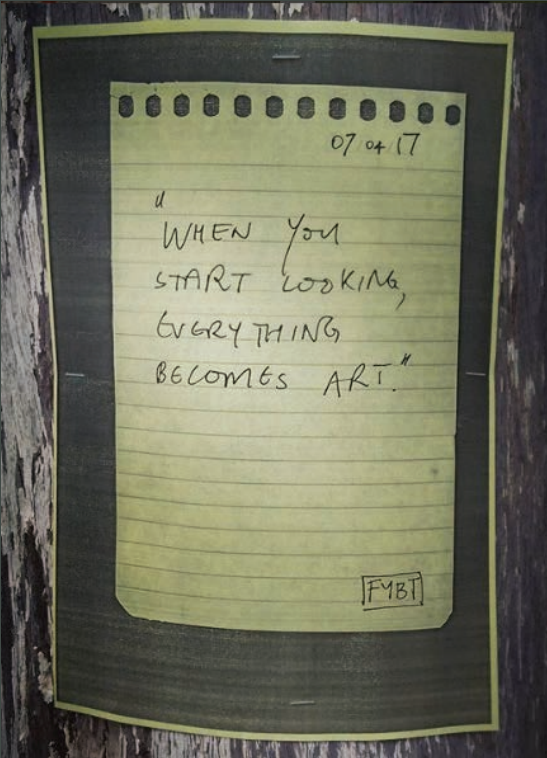 07 04 17
"
WHEN YOU
START LOOKING,
EVERYTHING
BECOMES ART."
FYBT